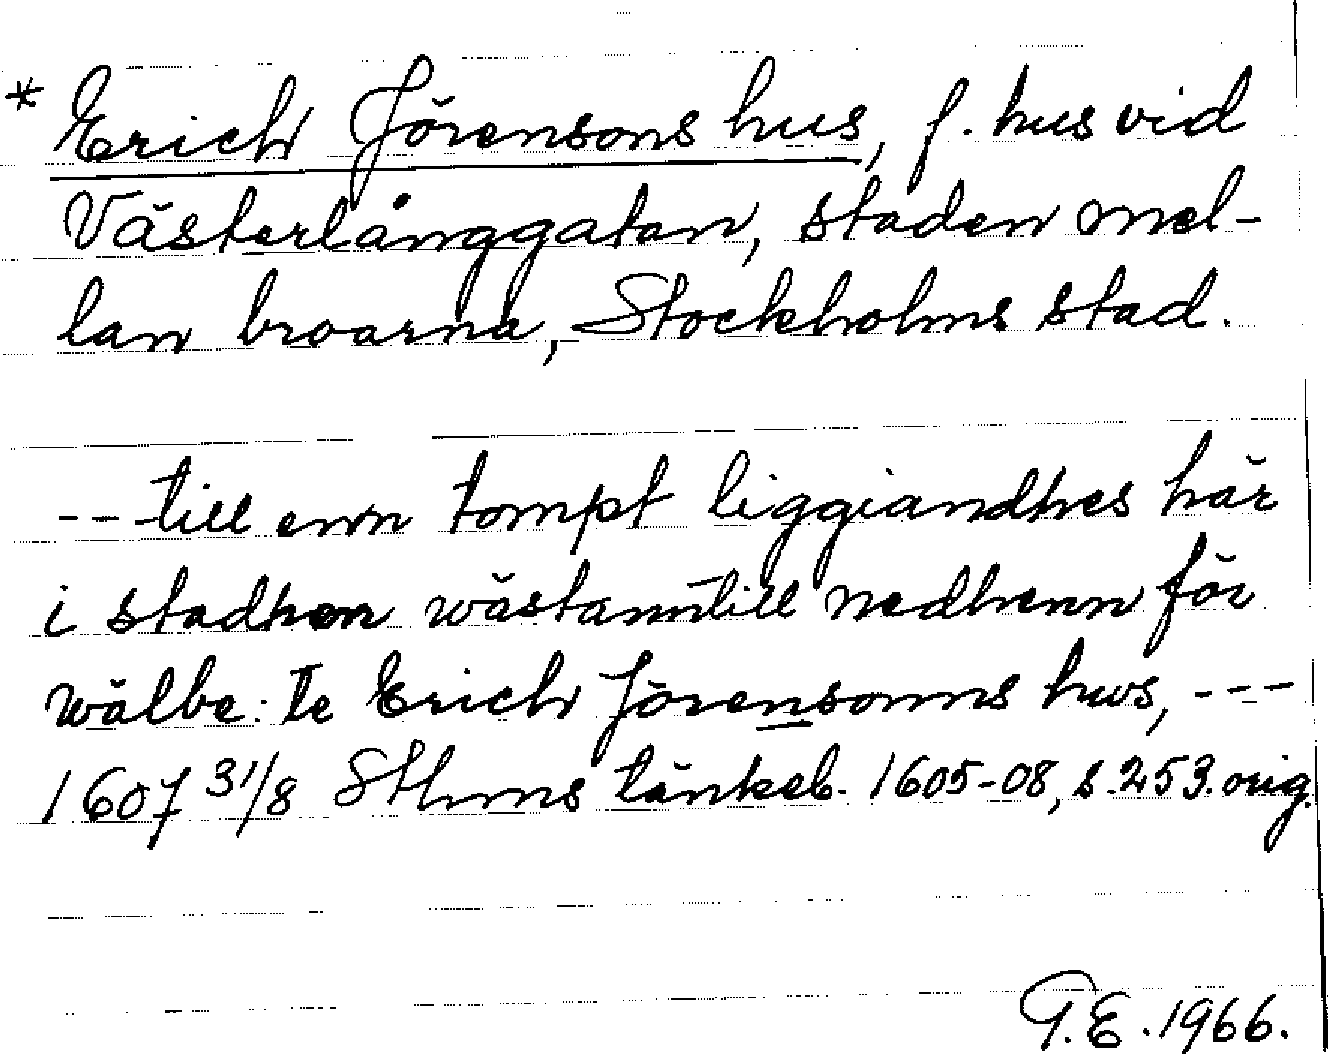 * Erich Jörensons hus, f. hus vid
Västerlånggatan, staden mel-
lan broarna, Stockholms stad.
---till enn tompt liggiandhes här
i stadhen wästanntill nedhenn för
wälbe: te Erich Jörensonns hws, ---
1607 31/8 Sthms tänkeb. 1605-08, s. 253. orig.
G.E. 1966.